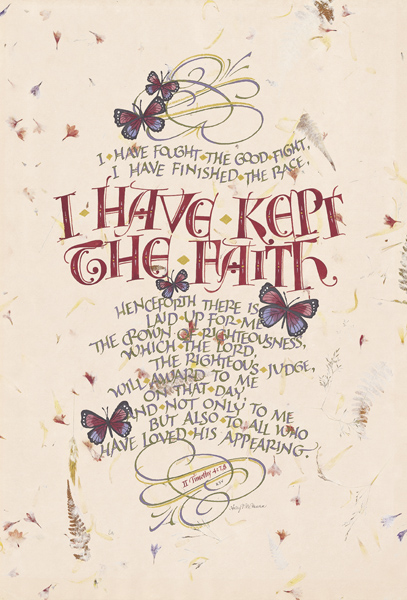 I · HAVE FOUGHT · THE GOOD · FIGHT,
I HAVE FINISHED · THE RACE,
I · HAVE · KEPT
THE · FAITH,
HENCEFORTH THERE IS
LAID UP FOR · ME
THE CROWN OF RIGHTEOUSNESS,
WHICH · THE LORD,
THE RIGHTEOUS · JUDGE,
WILL AWARD TO ME
ON · THAT · DAY,
AND · NOT ONLY TO ME
BUT ALSO · TO ALL WHO
HAVE LOVED · HIS APPEARING.
II Timothy 4:7,8